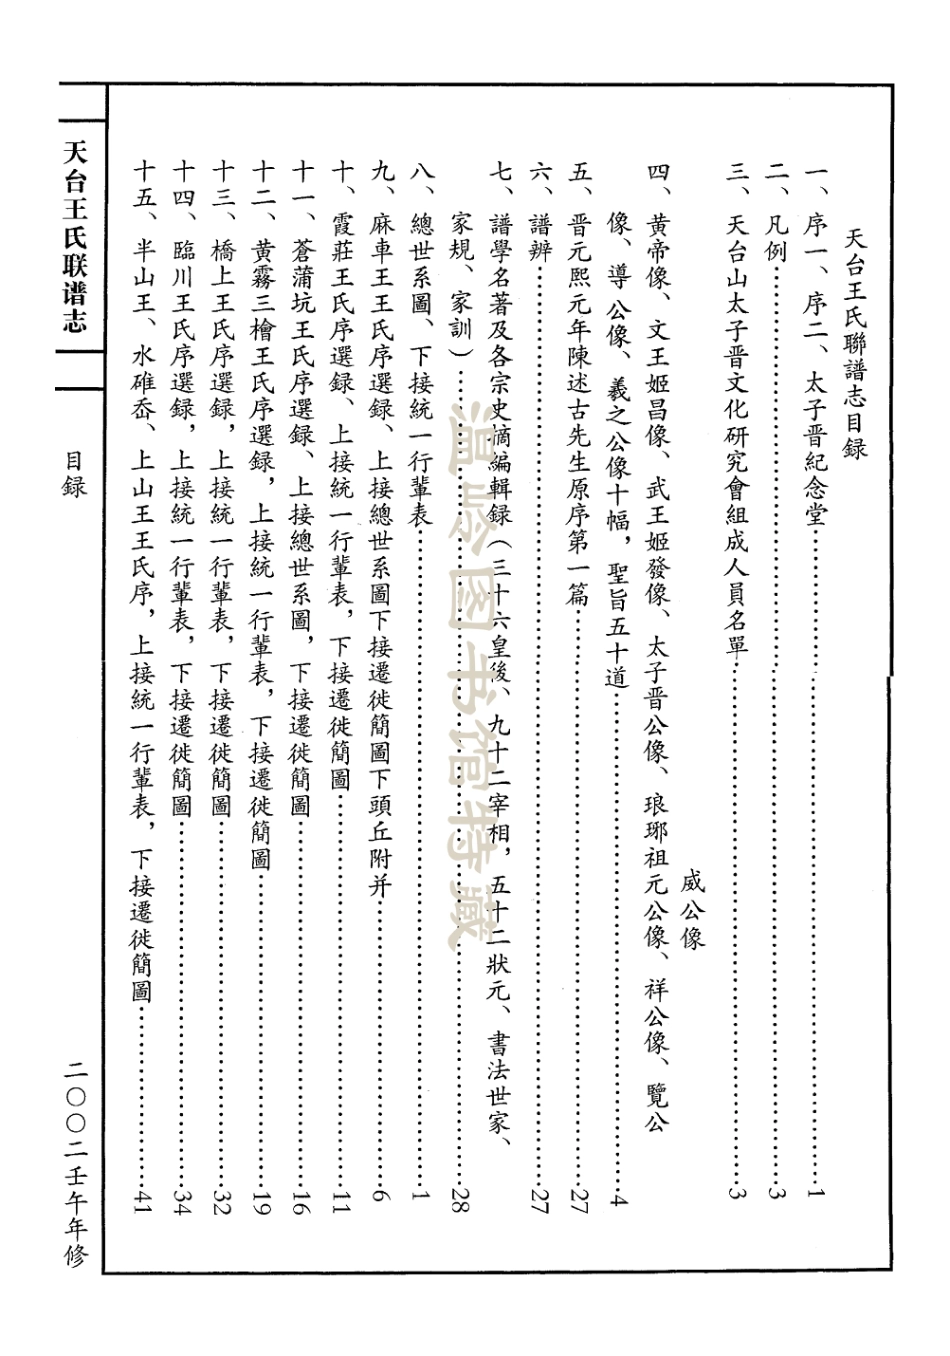 天台王氏聯譜志目録
一、序一、序二、太子晋紀念堂……1
二、凡例……3
三、天台山太子晋文化研究會組成人員名單……3
威公像
四、黄帝像、文王姬昌像、武王姬發像、太子晋公像、琅琊祖元公像、祥公像、覽公
像、導公像、羲之公像十幅，聖旨五十道……4
五、晋元熙元年陳述古先生原序第一篇……27
六、譜辨……27
七、譜學名著及各宗史摘編輯録（三十六皇後、九十二宰相，五十二狀元、書法世家、
家規、家訓）……28
八、總世系圖、下接統一行輩表……1
九、麻車王王氏序選録、上接總世系圖下接遷徙簡圖下頭丘附并……6
十、霞莊王氏序選録、上接統一行輩表，下接遷徙簡圖……11
十一、蒼蒲坑王氏序選録、上接總世系圖，下接遷徙簡圖……16
十二、黄霧三檜王氏序選録，上接統一行輩表，下接遷徙簡圖……19
十三、橋上王氏序選録，上接統一行輩表，下接遷徙簡圖……32
十四、臨川王氏序選録，上接統一行輩表，下接遷徙簡圖……34
十五、半山王、水碓岙、上山王王氏序，上接統一行輩表，下接遷徙簡圖……41
天台王氏联谱志
目録
二〇〇二壬午年修
温岭图书馆特藏